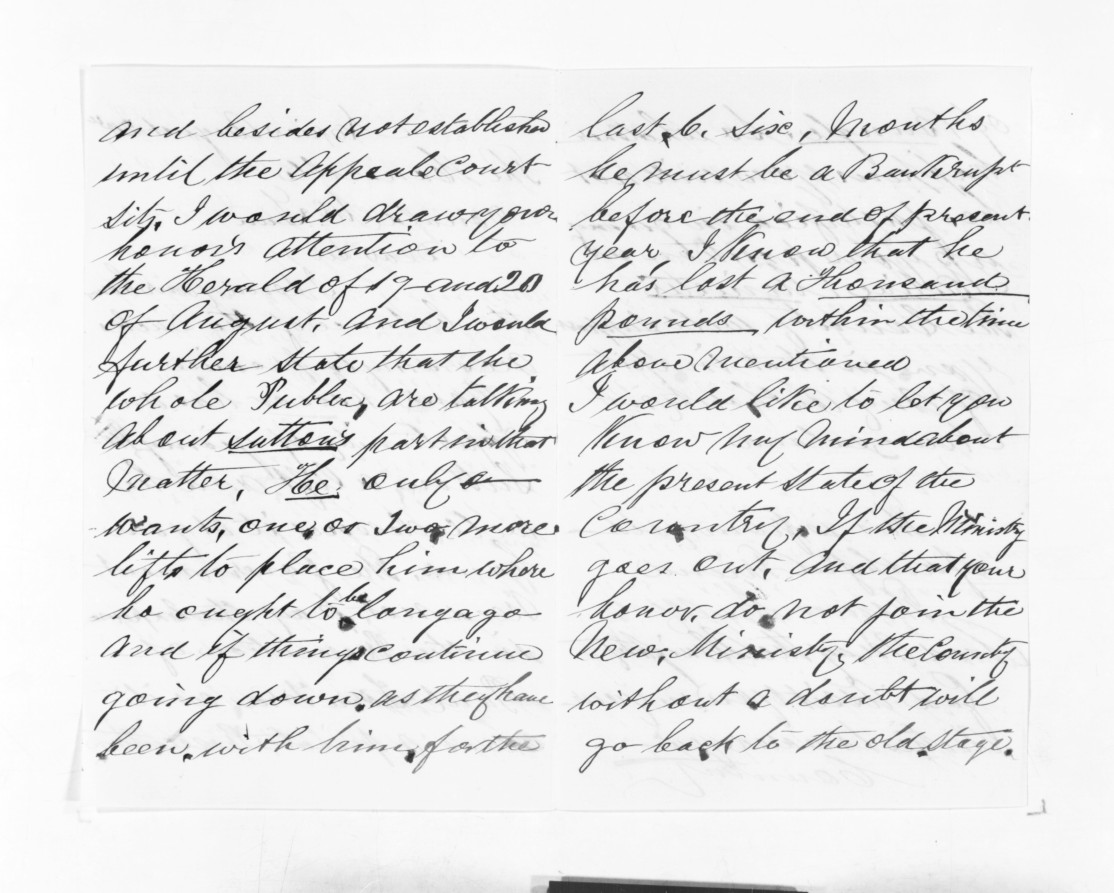 and besides not established
until the Appeale Court
sits, I would draw your
honors attention to
the Herald of 19 and 20
of August. and I would
further state that the
whole Public, are talking
about suttons part in that
Matter, He only
wants, one or two more
lifts to place him where
he ought to be long ago
and if things continue
going down. as they have
been. with him, for the
last, 6. six, Months
he must be a Bankrupt
before the end of present
year, I Know that he
has lost a Thousand
pounds within the time
above mentioned
I would like to let you
Know my mind about
the present state of the
Country. If the Ministry
goes out, and that your
honor. do not join the
New, Ministry, the County
without a doubt will
go back to the old stage.